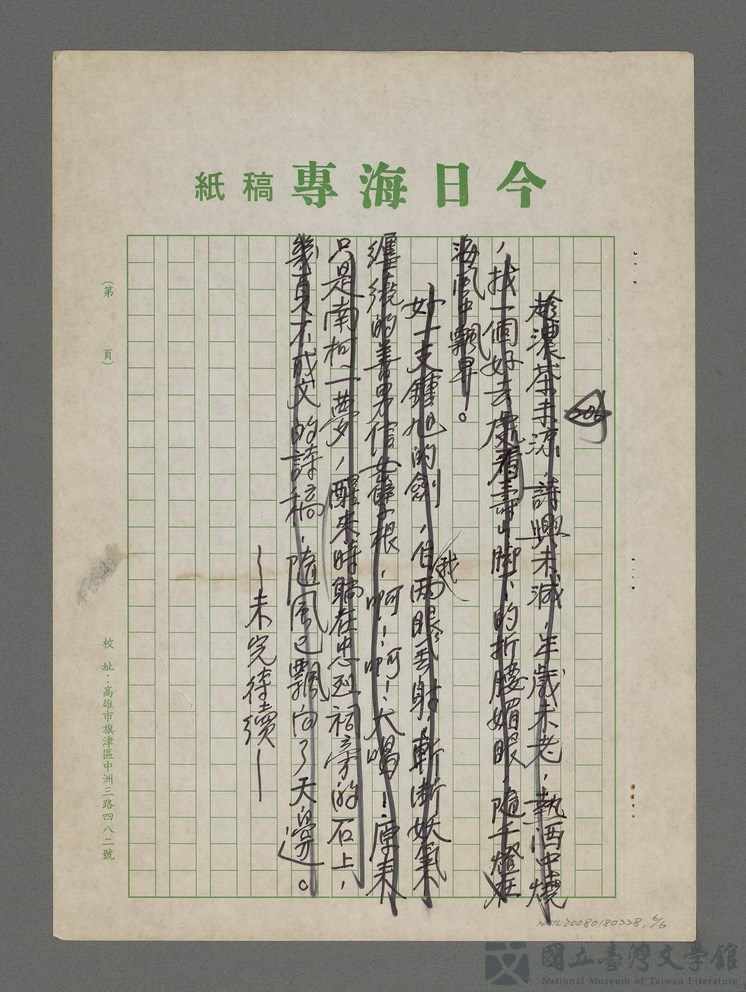 今日海專稿紙
趁濃茶未涼,詩興未減,年歲未老,熱酒中燒
,找一個好去處看壽山腳下的折腰媚眼,隨千燈在
海風中飄昇。
好一支鍾馗的劍,自我兩眼丟射,斬斷妖氣
纏繞的善男信女孽根,啊!啊!大喝!原來
只是南柯一夢,醒來時躺在忠烈祠旁的石上,
幾頁不成文的詩稿,隨風已飄向了天邊。
—未完待續—
(第 頁)
校址:高雄市旗津區中洲三路四八二號
NMTL20080180358, 6/6
國立臺灣文學館
National Museum of Taiwan Literature